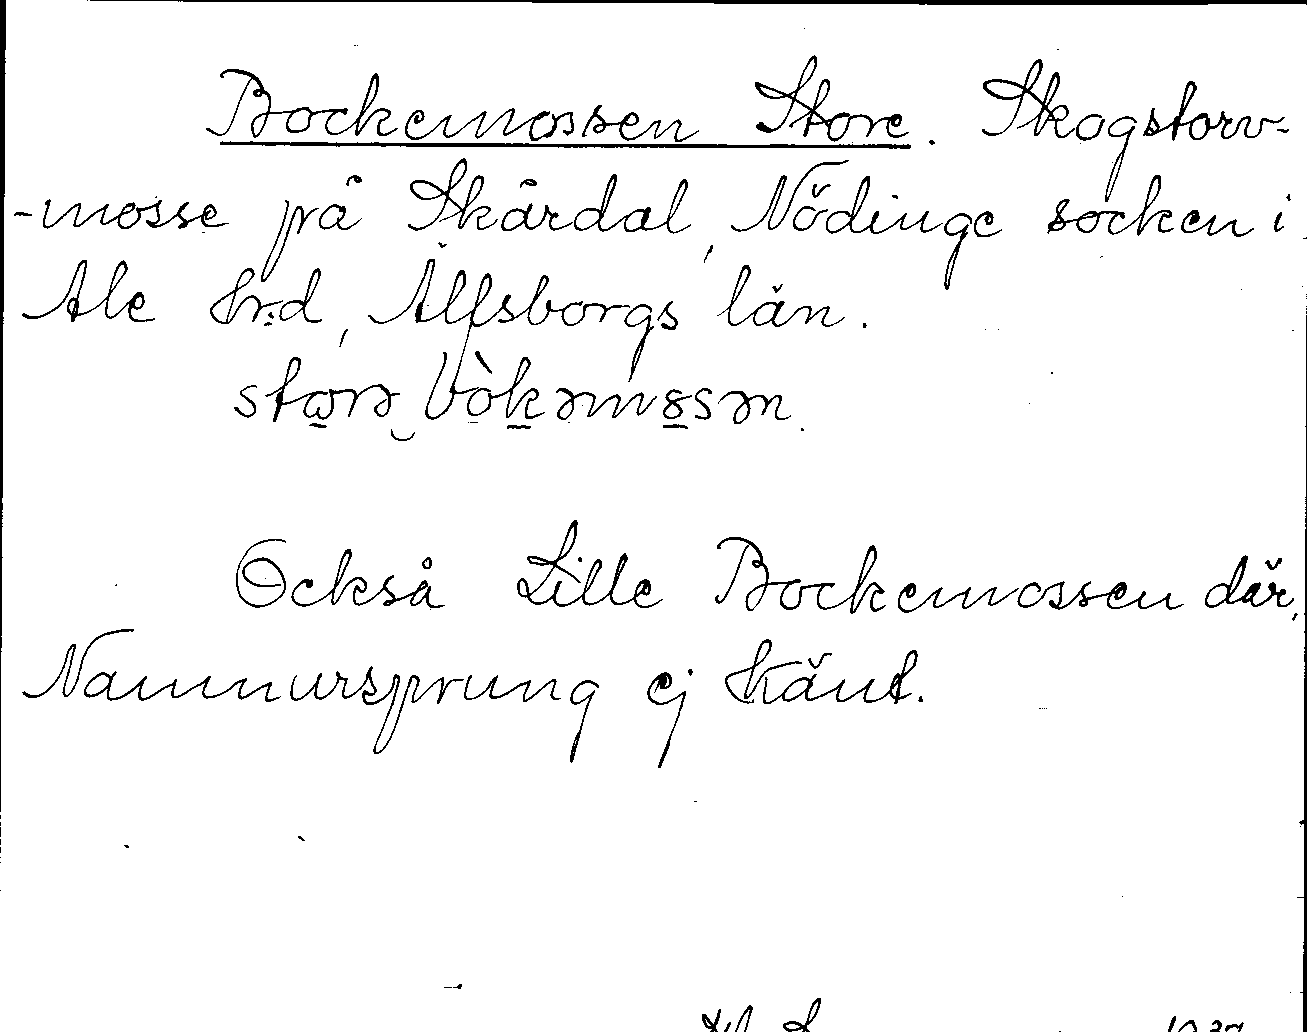 Bockemossen Store. Skogstorv-
-mosse på Skårdal, Nödinge socken i
Ale hrd, Älfsborgs län.
Också Lille Bockemossen där.
Namnursprung ej känt.